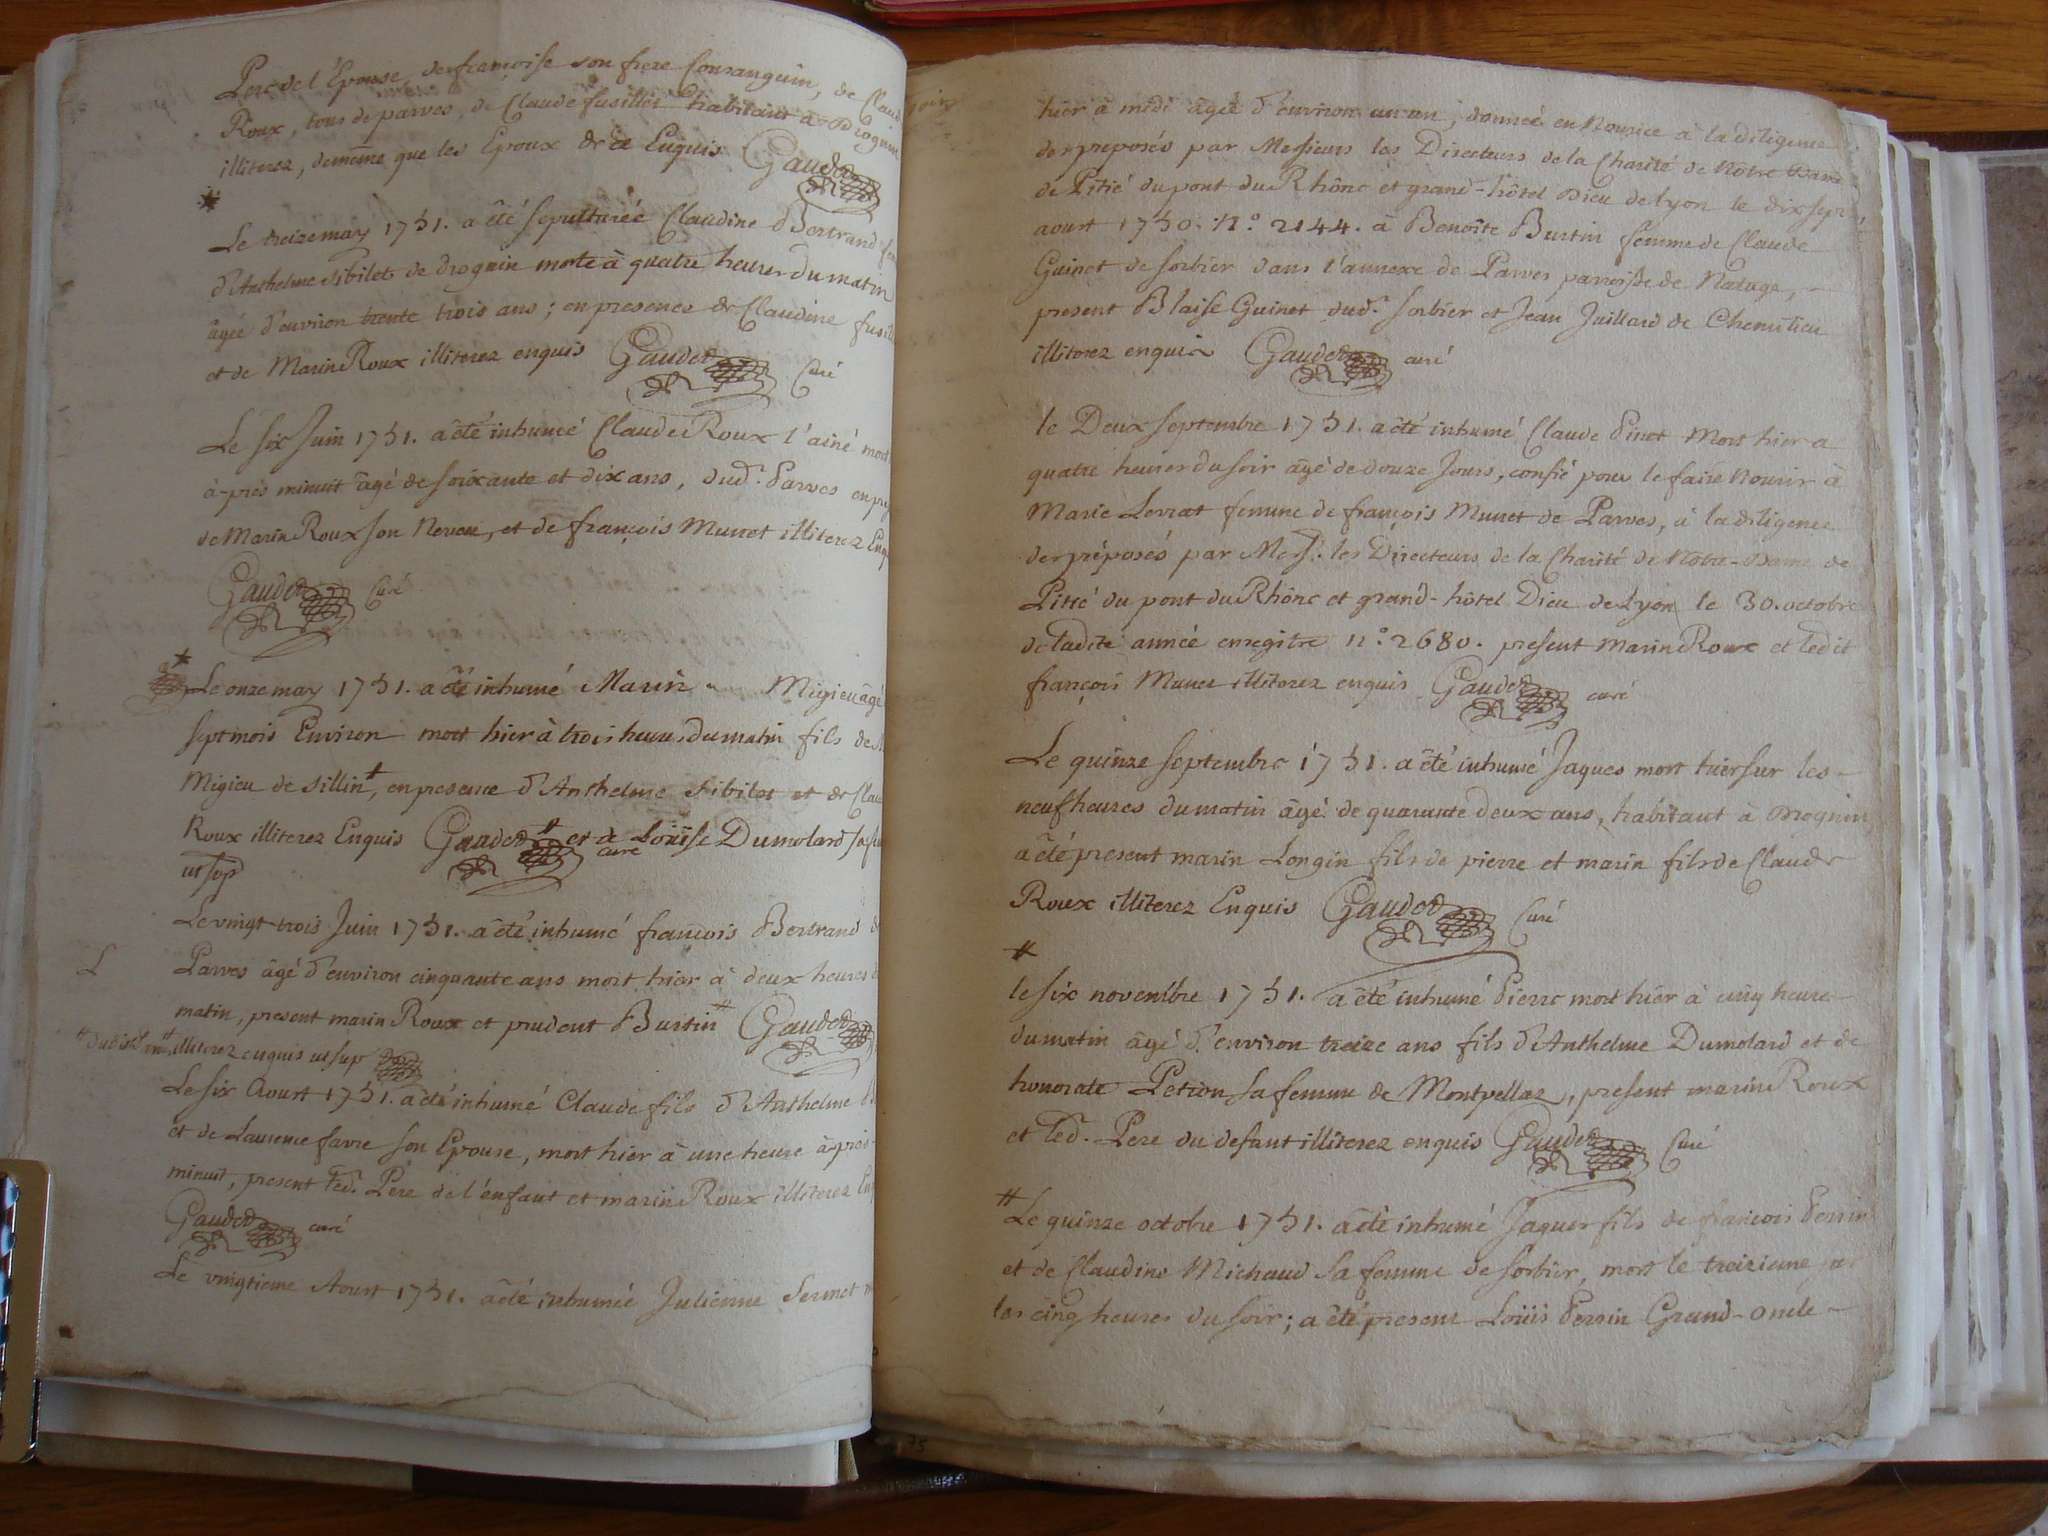 Pere de l'Epouse, de françoise son frere Consanguin, de Claud
Roux, tous de parves, de Claude fusillier habitant à Drognin
illiterez, de meme que les Epoux de ce Enquis Gaudet
Le treize may 1731. a été sepulturée Claudine Bertrand
d'Anthelme Sibilet de drognin morte à quatre heures du matin
âgée d'environ trente trois ans; en presence de Claudine
et de Marin Roux illiterez enquis Gaudet Curé
Le six Juin 1731. a été inhumé Claude Roux l'ainé mort
à-près minuit âgé de soixante et dix ans, dud. Parves en
de Marin Roux son Neveu, et de françois Munet illiterez
Gaudet Curé
Le onze may 1731. a été inhumé Marin Migieu âgé
sept mois Environ mort hier à trois heures du matin fils de
Migieu de sillin, en presence d'Anthelme Sibilet et de
Roux illiterez Enquis Gaudet curé et de Loüise Dumolard
ut sup
Le vingt trois Juin 1731. a été inhumé françois Bertrand
L Parves âgé d'environ cinquante ans mort hier à deux heures
matin, present marin Roux et prudent Burtin Gaudet
illiterez enquis ut sup
Le six Aoust 1731. a été inhumé Claude fils d'Anthelme
et de Laurence favre son Epouse, mort hier à une heure à-près
minuit, present led. Pere de l'enfant et marin Roux illiterez
Gaudet curé
Le vingtieme Aoust 1731. a été inhumée Julienne Sermet
hier à midi âgée d'environ un an, donnée en Nourice à la diligence
des preposés par Messieurs les Directeurs de la Charité de Notre Dame
de Pitié du pont du Rhône et grand-hôtel Dieu de Lyon le dix sept
aoust 1730. N.° 2144. à Benoîte Burtin femme de Claude
Guinet de sorbier dans l'annexe de Parves parroisse de Natage,
present Blaise Guinet dud. sorbier et Jean Juillard de Chemilieu
illiterez enquis Gaudet curé
le Deux septembre 1731. a été inhumé Claude Pinet Mort hier a
quatre heures du soir âgé de douze Jours, confié pour le faire Nourir à
Marie Levrat femme de françois Munet de Parves, à la diligence
des préposés par Mess. les Directeurs de la Charité de Notre-Dame de
Pitié du pont du Rhône et grand-hôtel Dieu de Lyon le 30. octobre
de ladite année enregitre n.° 2680. present Marin Roux et ledit
françois Munet illiterez enquis Gaudet curé
Le quinze septembre 1731. a été inhumé Jaques mort hier sur les
neuf heures du matin âgé de quarante deux ans, habitant à Drognin
a été present marin Longin fils de pierre et marin fils de Claude
Roux illiterez Enquis Gaudet Curé
le six novembre 1731. a été inhumé Pierre mort hier à cinq heures
du matin âgé d'environ treize ans fils d'Anthelme Dumolard et de
honorate Petion sa femme de Montpellaz, present marin Roux
et led. Pere du defunt illiterez enquis Gaudet Curé
Le quinze octobre 1731. a été inhumé Jaques fils de françois Perrin
et de Claudine Michaud sa femme de sorbier, mort le treizieme sur
les cinq heures du soir; a été present Loüis Perrin Grand-oncle